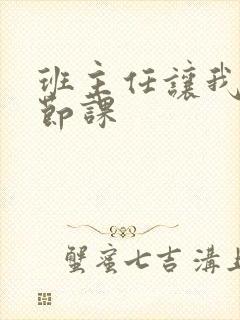 班主任讓我
節課
蟹蜜七吉溝上